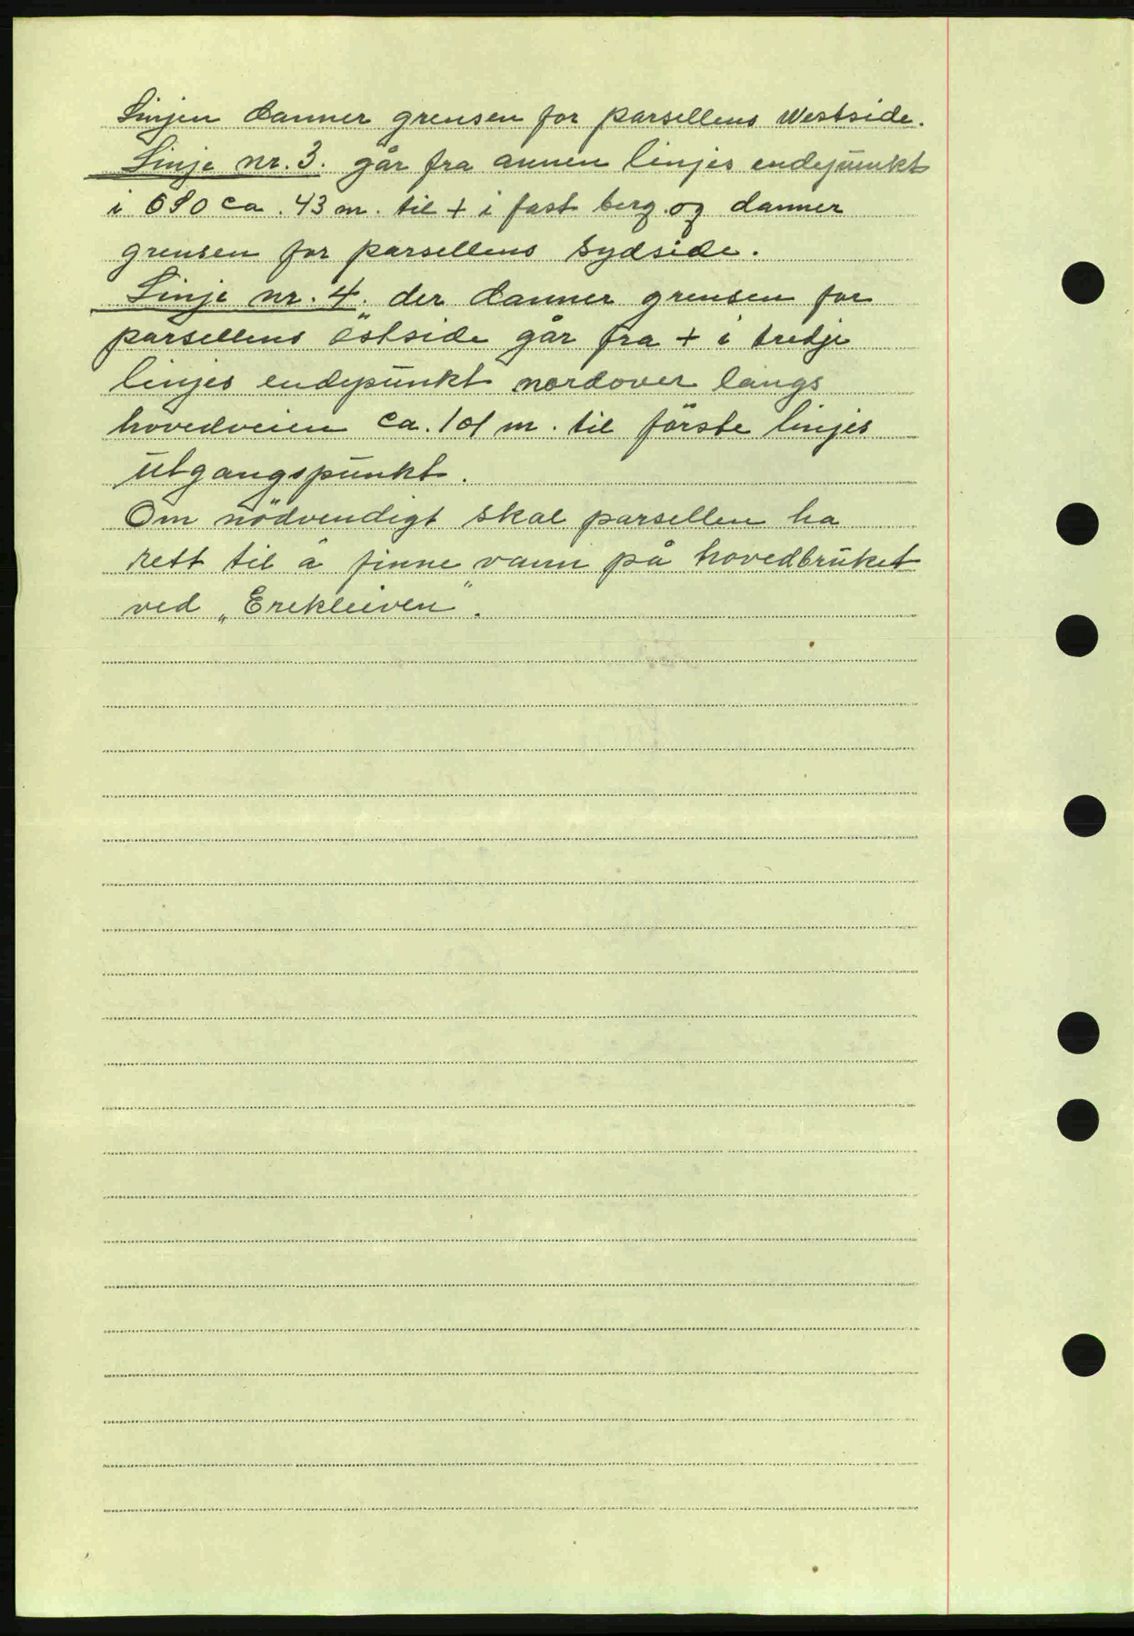 Linjen danner grensen for parsellens Westside.
Linje nr. 3. går fra annen linjes endepunkt
i OSO ca. 43 m. til + i fast berg og danner
grensen for parsellens Sydside.
Linje nr. 4. der danner grensen for
parsellens östside går fra + i tredje
linjes endepunkt nordover langs
hovedveien ca. 101 m. til förste linjes
utgangspunkt.
Om nödvendigt skal parsellen ha
rett til å finne vann på hovedbruket
ved „Erekleiven”.